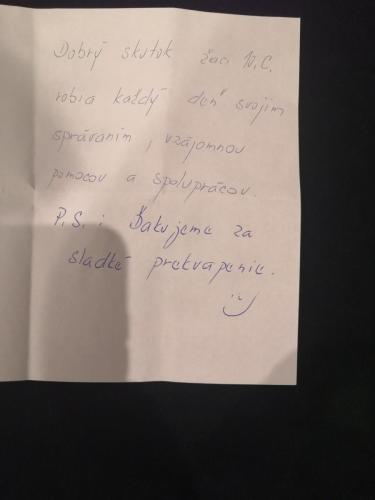 Dobrý skutok žiaci IV.C.
robia každý deň svojím
správaním, vzájomnou
pomocov a spoluprácov.
P.S.: Ďakujeme za
sladké prekvapenie.
:-)